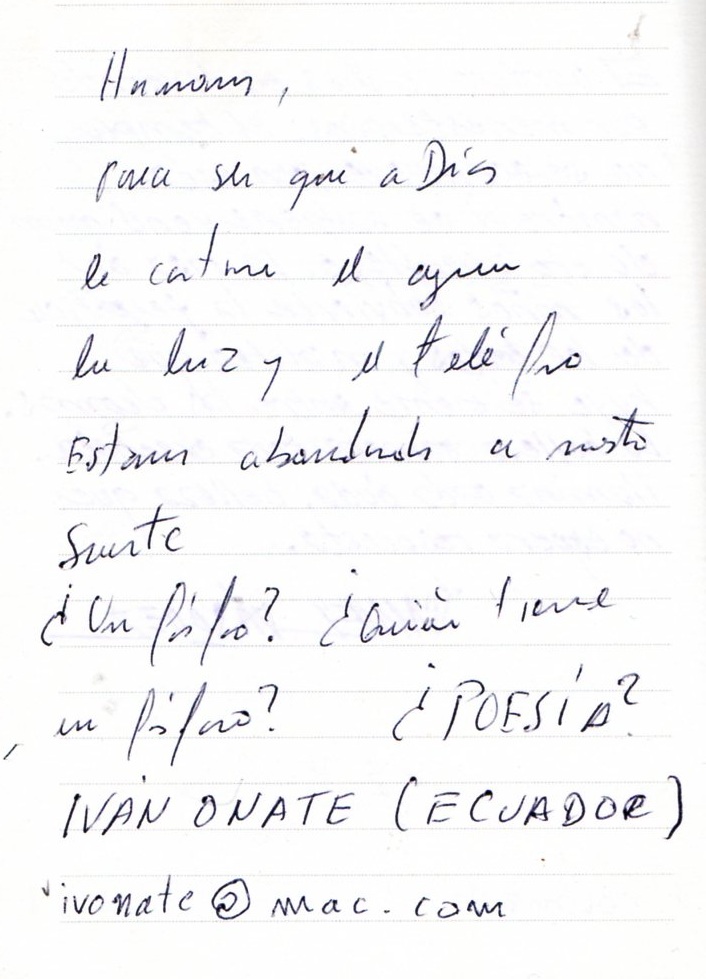 Hermanos,
parece ser que a Dios
le cortaron el agua
la luz y el teléfono
Estamos abandonados a nuestra
Suerte
¿Un fósforo? ¿Quién tiene
un fósforo? ¿POESÍA?
IVÁN OÑATE (ECUADOR)
ivonate@mac.com